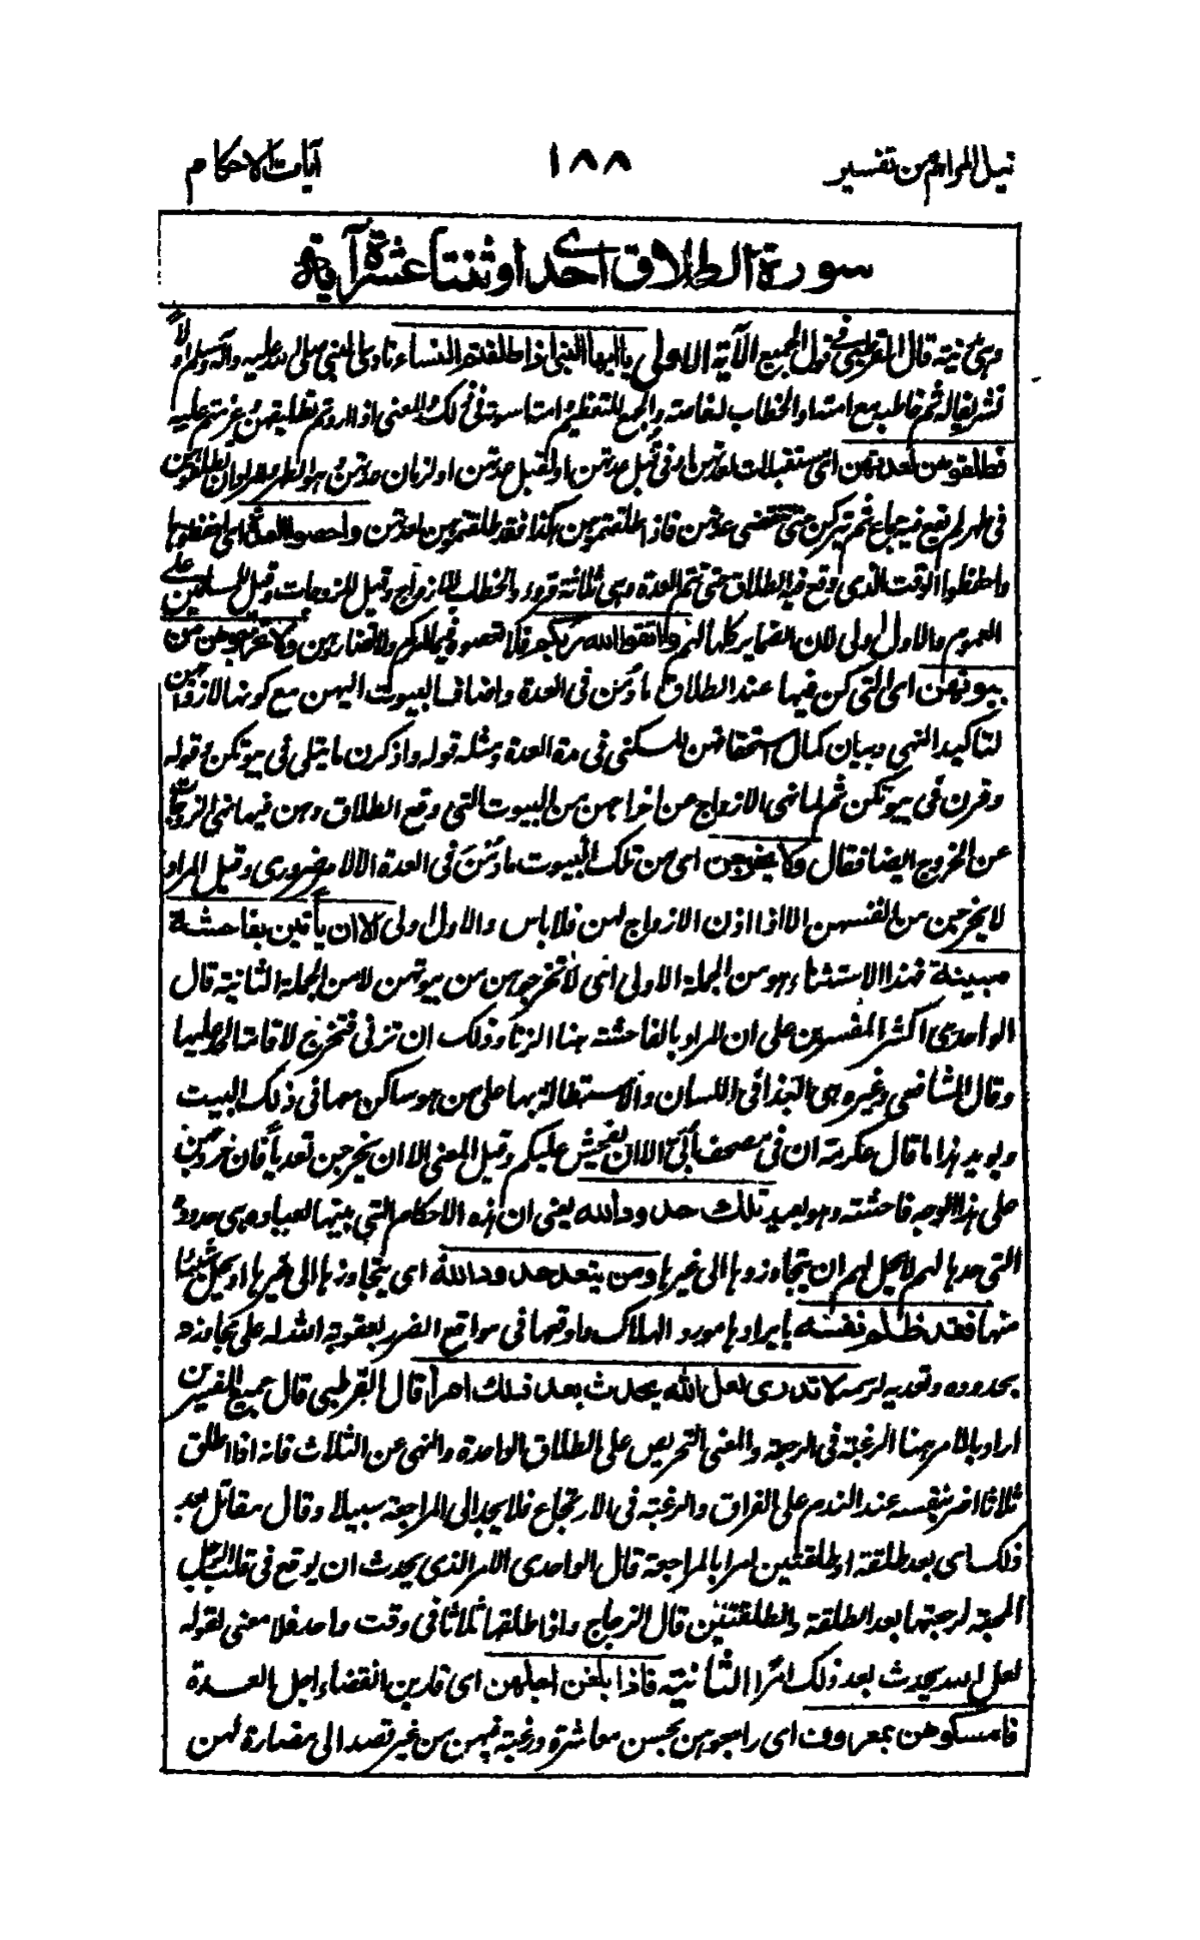 نيل المرام من تفسير ١٨٨ آيات الاحكام
سورة الطلاق احدى او ثنتا عشرة آية
وهى مدنية قال القرطبي فى قول الجميع الآية الاولى يا ايها النبى اذا طلقتم النساء نادى النبى صلى الله عليه وآله وسلم اولاً
تشريفا له ثم خاطبه مع امته او الخطاب له خاصة والجمع للتعظيم وامته اسوته فى ذلك والمعنى اذا اردتم تطليقهن وعزمتم عليه
فطلقوهن لعدتهن اى مستقبلات لعدتهن او فى قُبل عدتهن او لقبل عدتهن او لزمان عدتهن وهو الطهر والمراد ان يطلقوهن
فى طهر لم يقع فيه جماع ثم يتركن حتى تنقضى عدتهن فاذا طلقتموهن هكذا فقد طلقتموهن لعدتهن واحصوا العدة اى احفظوها
واحفظوا الوقت الذى وقع فيه الطلاق حتى تتم العدة وهى ثلاثة قروء والخطاب للازواج وقيل للزوجات وقيل للمسلمين على
العموم والاول اولى لان الضمائر كلها لهم واتقوا الله ربكم فلا تعصوه فيما امركم ولا تضاروهن ولا تخرجوهن من
بيوتهن اى التى كن فيها عند الطلاق ما دُمن فى العدة واضاف البيوت اليهن مع كونها لازواجهن
لتاكيد النهى وبيان كمال استحقاقهن للسكنى فى مدة العدة ومثله قوله واذكرن ما يتلى فى بيوتكن وقوله
وقرن فى بيوتكن ثم لما نهى الازواج عن اخراجهن من البيوت التى وقع الطلاق وهن فيها نهى الزوجات
عن الخروج ايضا فقال ولا يخرجن اى من تلك البيوت ما دُمنَ فى العدة الا لامر ضرورى وقيل المراد
لا يخرجن من انفسهن الا اذا اذن الازواج لهن فلا باس والاول اولى الا ان يأتين بفاحشة
مبينة هذا الاستثناء هو من الجملة الاولى اى لا تخرجوهن من بيوتهن لا من الجملة الثانية قال
الواحدى اكثر المفسرين على ان المراد بالفاحشة هنا الزنا وذلك ان تزنى فتخرج لاقامة الحد عليها
وقال الشافعى وغيره هى البذا فى اللسان والاستطالة بها على من هو ساكن معها فى ذلك البيت
ويويد هذا ما قال عكرمة ان فى مصحف أُبىّ الا ان يفحش عليكم وقيل المعنى الا ان يخرجن تعدياً فان خروجهن
على هذا الوجه فاحشة وهو بعيد تلك حدود الله يعنى ان هذه الاحكام التى بينها لعباده هى حدوده
التى حدها لهم لا يحل لهم ان يتجاوزوها الى غيرها ومن يتعد حدود الله اى يتجاوزها الى غيرها او يخل بشئ
منها فقد ظلم نفسه بايرادها مورد الهلاك واوقعها فى مواقع الضرر بعقوبة الله له على تجاوزه
بحدوده وتعديه لرسمه لا تدرى لعل الله يحدث بعد ذلك امرا قال القرطبى قال جميع المفسرين
اراد بالامر هنا الرغبة فى الرجعة والمعنى التحريص على الطلاق الواحدة والنهى عن الثلاث فانه اذا طلق
ثلاثا اضر بنفسه عند الندم على الفراق والرغبة فى الارتجاع فلا يجد الى المراجعة سبيلا وقال مقاتل بعد
ذلك اى بعد طلقة او طلقتين امرا بالمراجعة قال الواحدى الامر الذى يحدث ان يوقع فى قلب الرجل
المحبة لرجعتها بعد الطلقة والطلقتين قال الزجاج واذا طلقها ثلاثا فى وقت واحد فلا معنى لقوله
لعل الله يحدث بعد ذلك امرًا الثانية فاذا بلغن اجلهن اى قاربن انقضاء اجل العدة
فامسكوهن بمعروف اى راجعوهن بحسن معاشرة ورغبة فيهن من غير قصد الى مضارة لهن